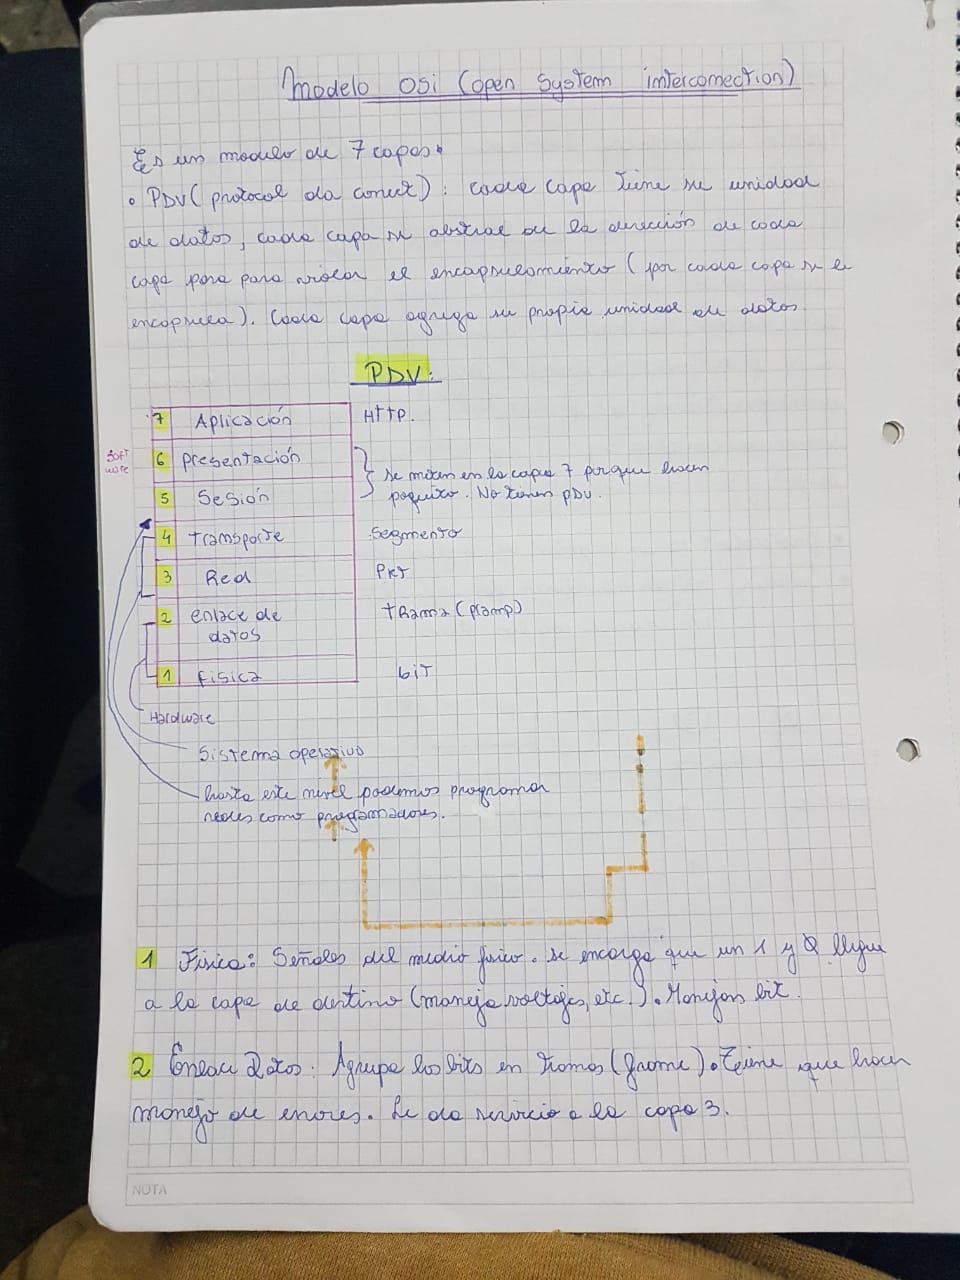 Modelo OSi (open system interconection)
Es un modulo de 7 capas.
• PDU (protocol da conect): cada capa tiene su unidad
de datos, cada capa se abstrae de la dirección de cada
capa para para violar el encapsulamiento (por cada capa se le
encapsula). Cada capa agrega su propia unidad de datos.
PDU:
7 Aplicación HTTP.
Soft
ware
6 presentación
5 Sesión
Se meten en la capa 7 porque hacen
poquito. No tienen pdu.
4 transporte Segmento
3 Red PKT
2 enlace de
datos
trama (framp)
1 fisica biT
Hardware
Sistema operativo
hasta este nivel podemos programar
redes como programadores.
1 Física: Señales del medio físico. se encarga que un 1 y 0 llegue
a la capa de destino (maneja voltajes, etc.). Manejan bit.
2 Enlace Datos: Agrupa los bits en tramas (frame). Tiene que hacer
manejo de errores. Le da servicio a la capa 3.
NOTA